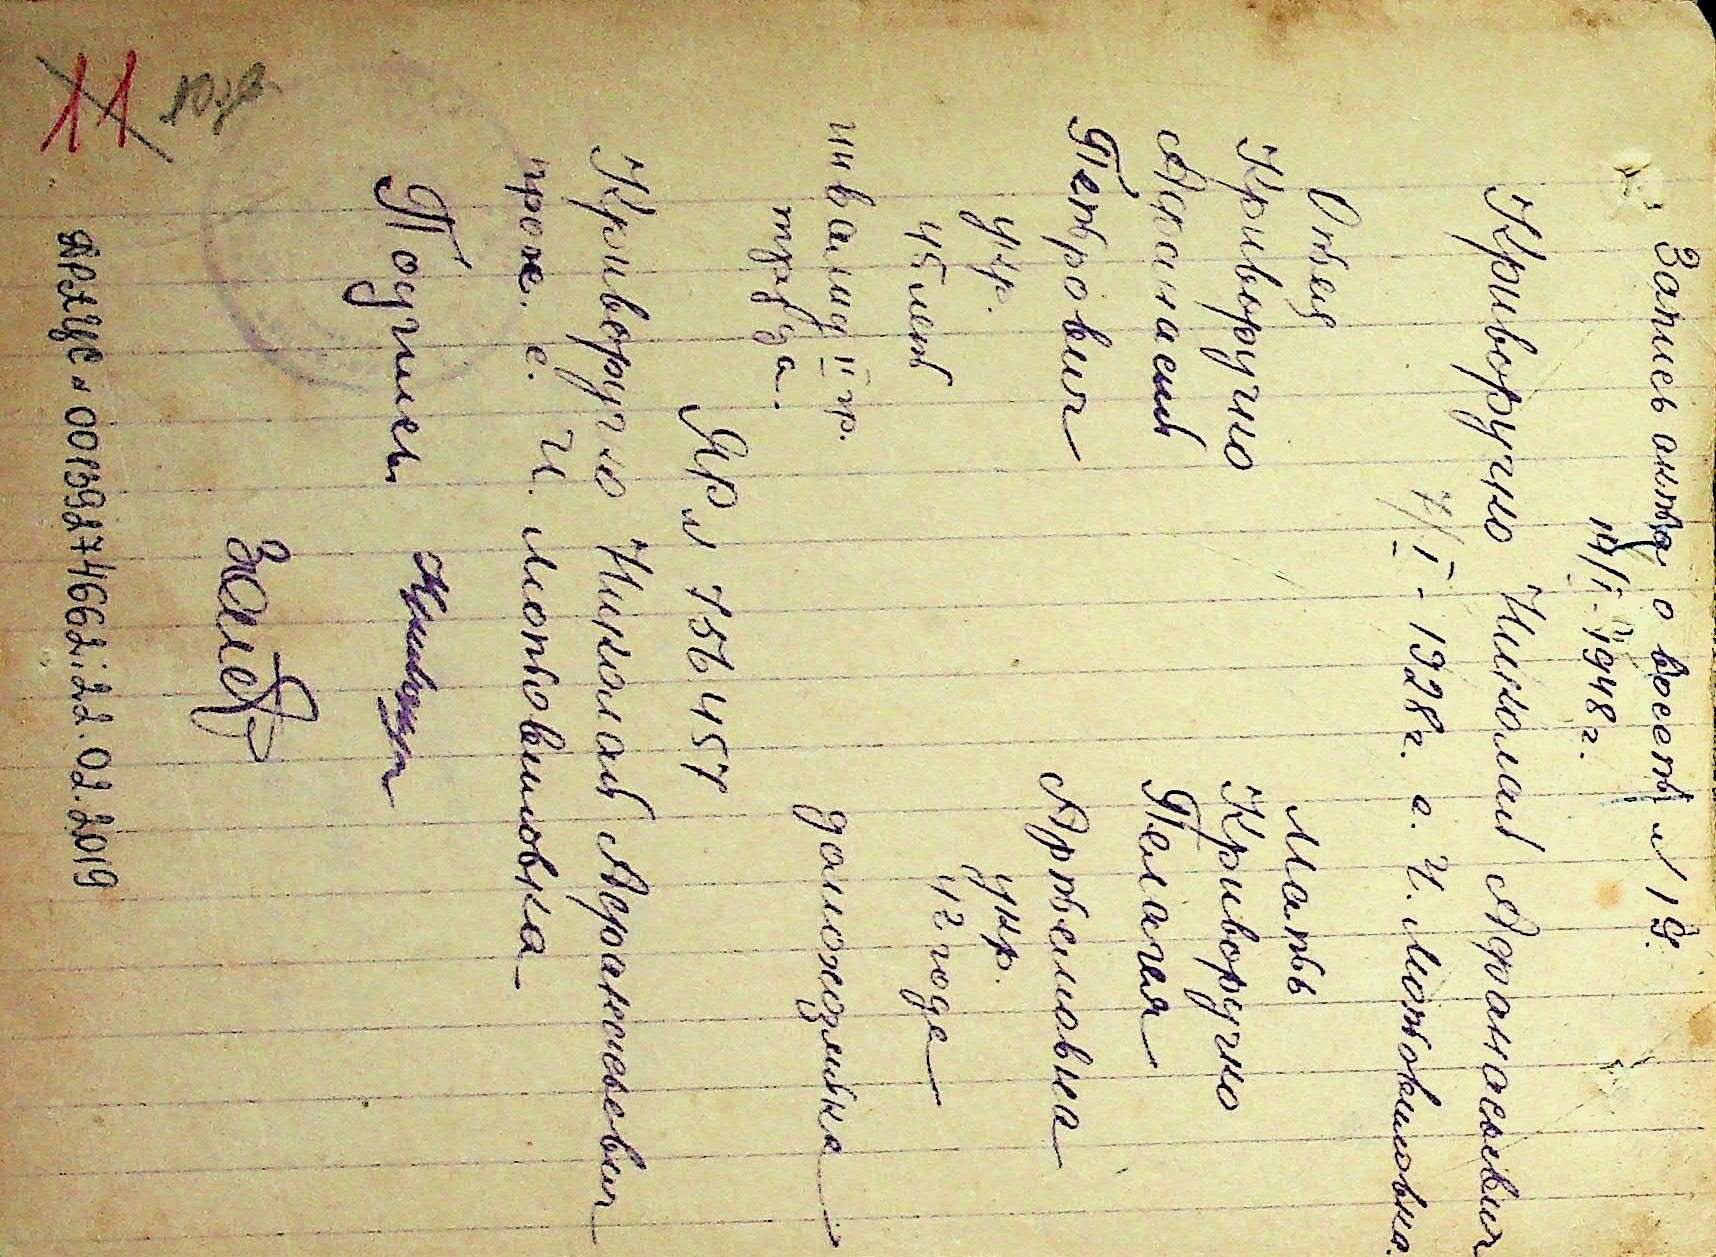 Запись акта о восст № 19.
14/I-1948 г.
Криворучко Николай Афанасьевич
7/I-1928 г. с. Ч. Мотовиловка.
Отец
Криворучко
Афанасий
Петрович
укр.
45 лет
инвалид II гр.
труда.
Мать
Криворучко
Пелагея
Артемовна
укр.
42 года
домохозяйка
ЯР № 756457
Криворучко Николай Афанасьевич
прож. с. Ч. Мотовиловка
Подпись
11
00139274662.22.02.2019